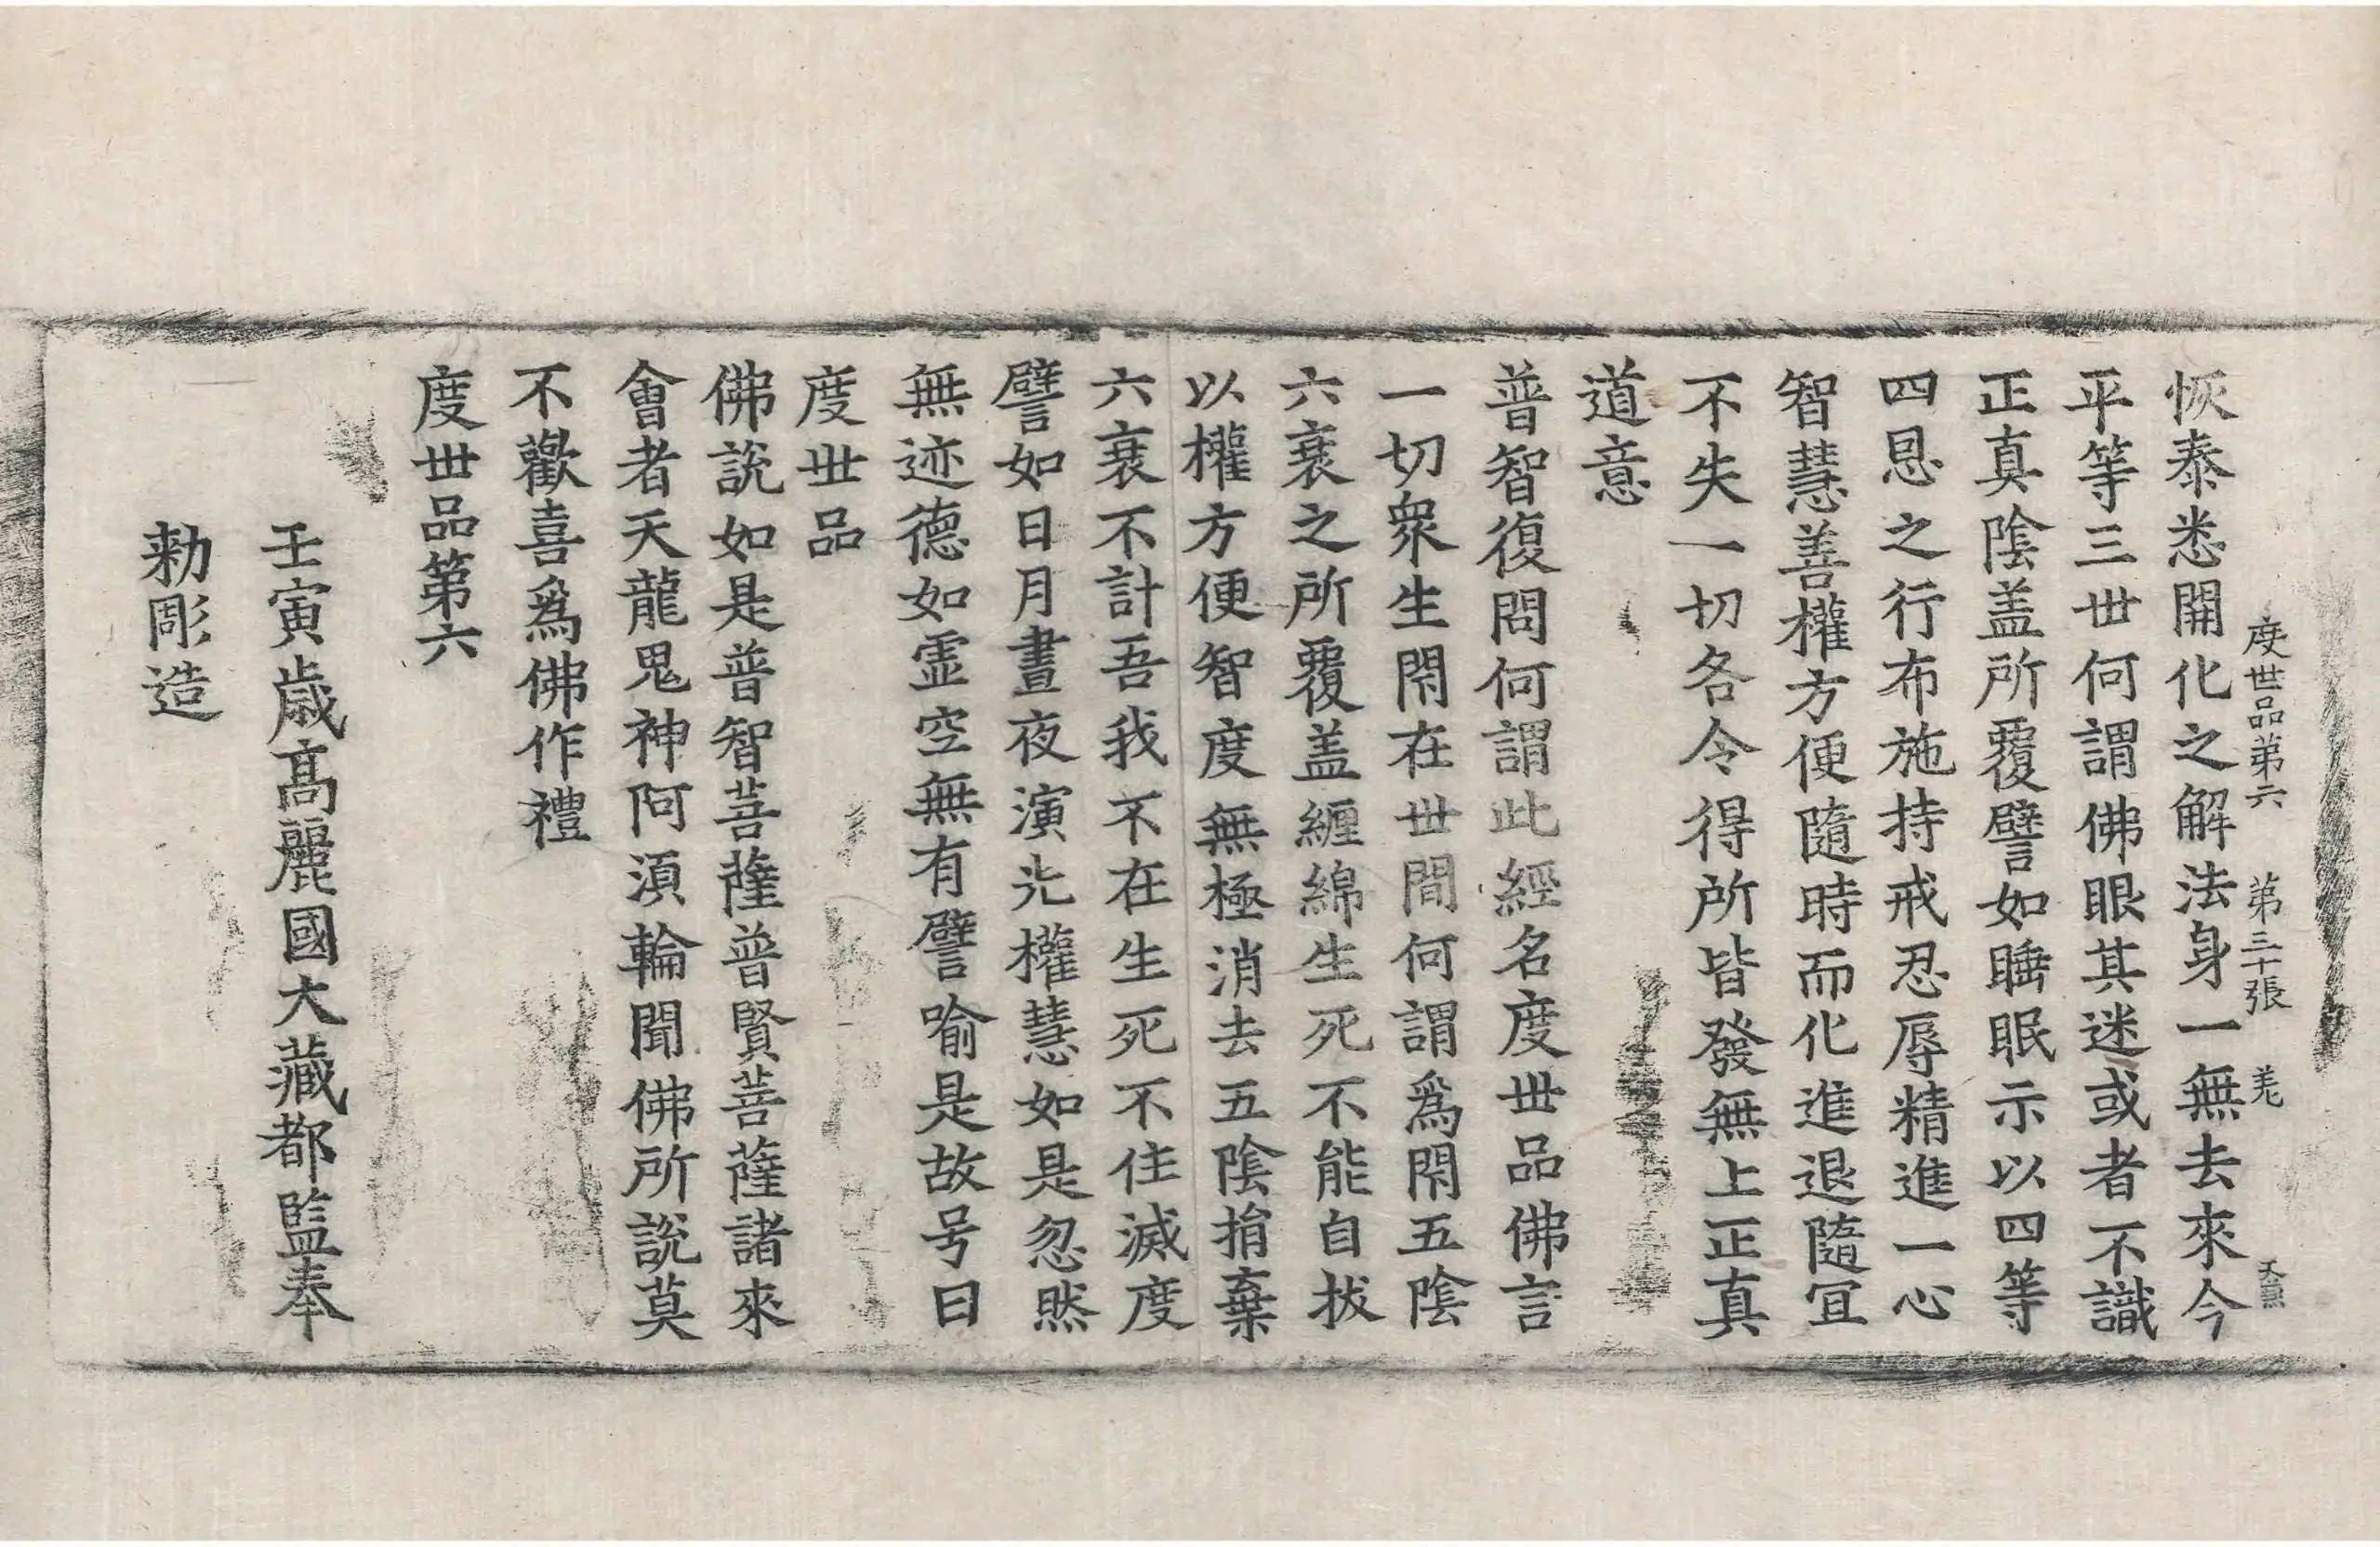 度世品第六 第三十張 羌
恢泰悉開化之解法身一無去來今
平等三世何謂佛眼其迷或者不識
正真陰盖所覆譬如睡眠示以四等
四恩之行布施持戒忍辱精進一心
智慧善權方便隨時而化進退隨冝
不失一切各令得所皆發無上正真
道意
普智復問何謂此經名度世品佛言
一切衆生閇在世間何謂爲閇五陰
六衰之所覆盖纒綿生死不能自拔
以權方便智度無極消去五陰捐棄
六衰不計吾我不在生死不住滅度
譬如日月晝夜演光權慧如是忽然
無迹德如虛空無有譬喻是故号曰
度世品
佛說如是普智菩薩普賢菩薩諸來
會者天龍鬼神阿須輪聞佛所說莫
不歡喜爲佛作禮
度世品第六
壬寅歲高麗國大藏都監奉
勅彫造